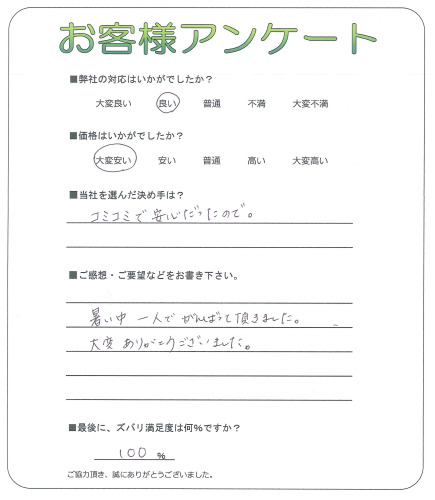 お客様アンケート
■弊社の対応はいかがでしたか？
大変良い 良い 普通 不満 大変不満
■価格はいかがでしたか？
大変安い 安い 普通 高い 大変高い
■当社を選んだ決め手は？
コミコミで安心だったので。
■ご感想・ご要望などをお書き下さい。
暑い中 一人でがんばって頂きました。
大変ありがとうございました。
■最後に、ズバリ満足度は何%ですか？
100 %
ご協力頂き、誠にありがとうございました。